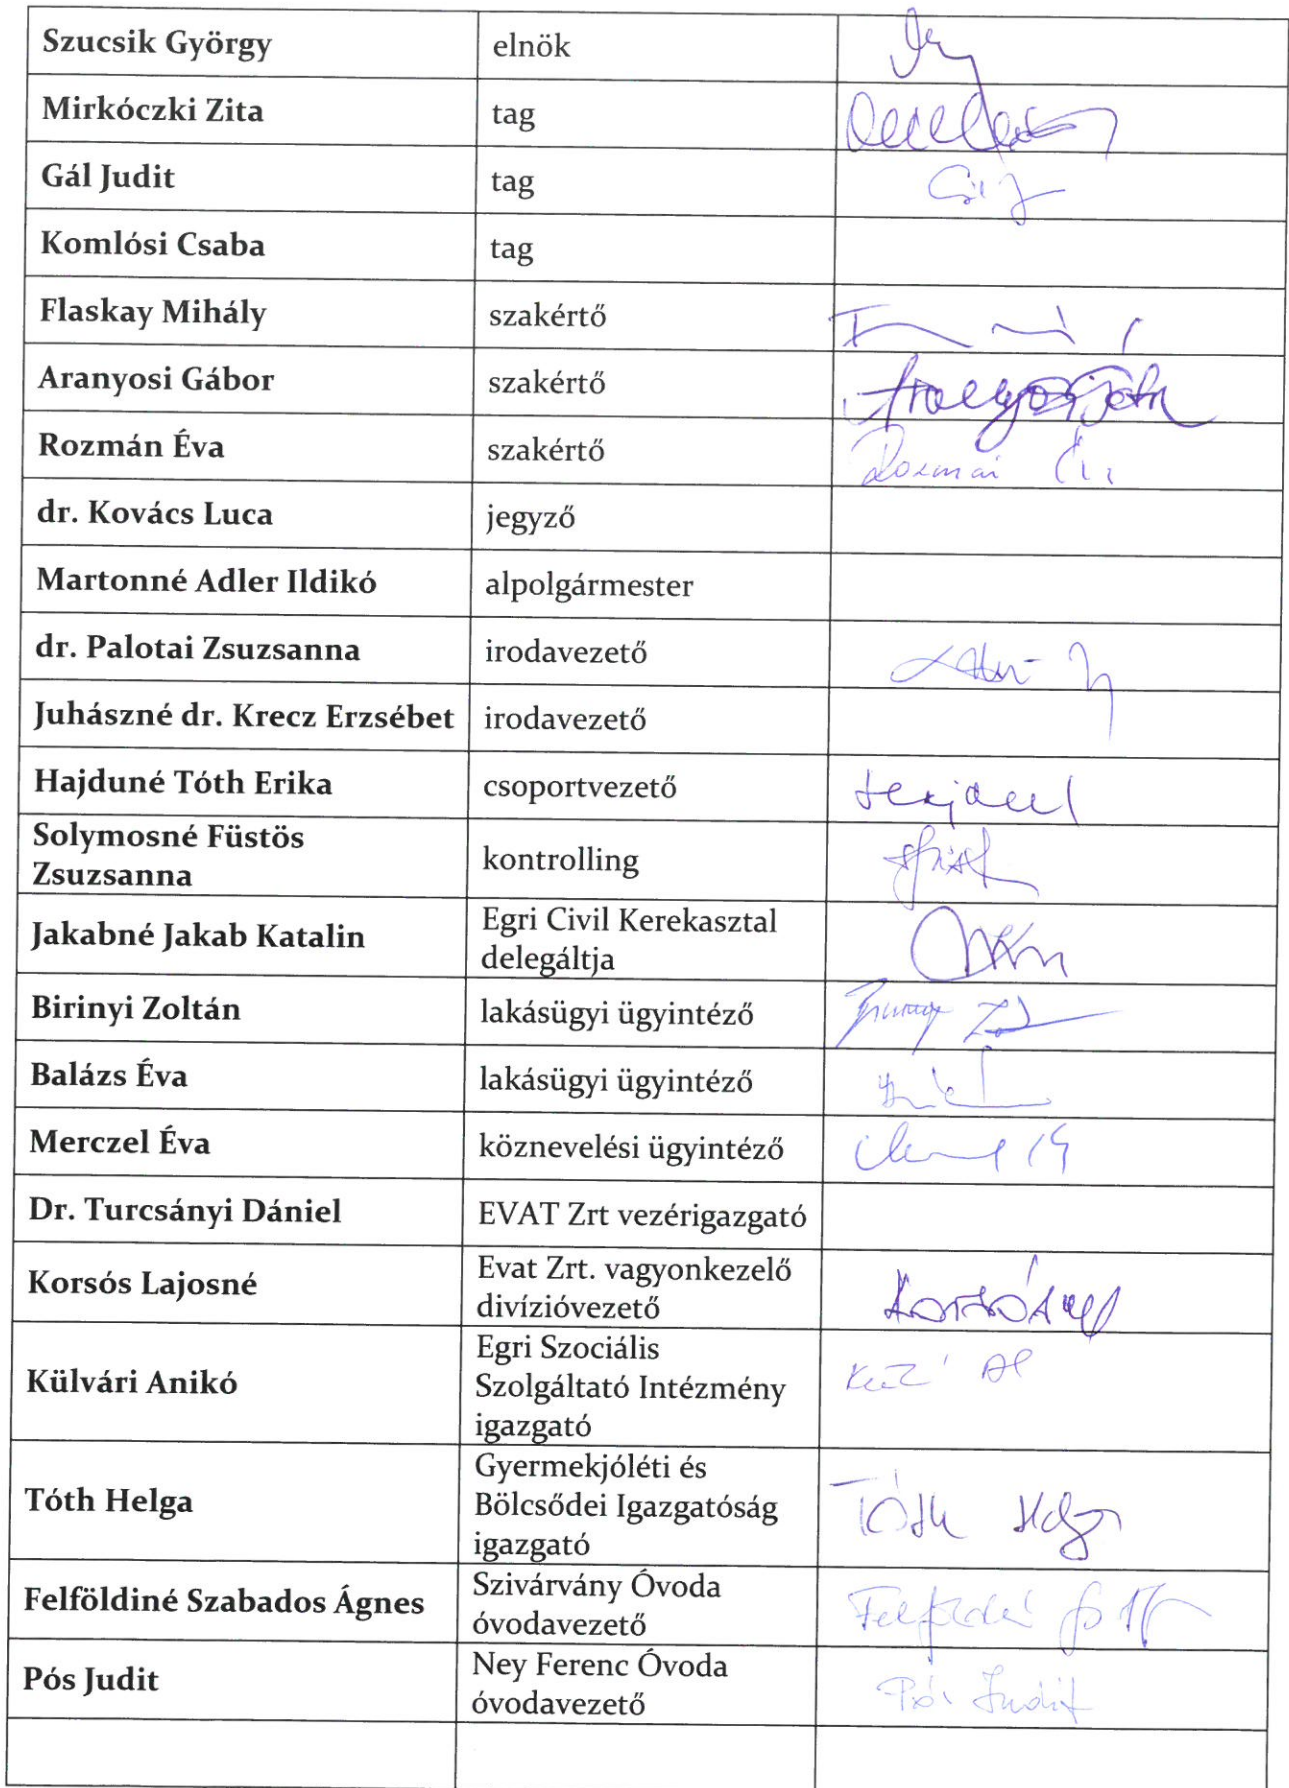 Szucsik György elnök
Mirkóczki Zita tag
Gál Judit tag
Komlósi Csaba tag
Flaskay Mihály szakértő
Aranyosi Gábor szakértő
Rozmán Éva szakértő
dr. Kovács Luca jegyző
Martonné Adler Ildikó alpolgármester
dr. Palotai Zsuzsanna irodavezető
Juhászné dr. Krecz Erzsébet irodavezető
Hajduné Tóth Erika csoportvezető
Solymosné Füstös
Zsuzsanna
kontrolling
Jakabné Jakab Katalin
Egri Civil Kerekasztal
delegáltja
Birinyi Zoltán lakásügyi ügyintéző
Balázs Éva lakásügyi ügyintéző
Merczel Éva köznevelési ügyintéző
Dr. Turcsányi Dániel EVAT Zrt vezérigazgató
Korsós Lajosné
Evat Zrt. vagyonkezelő
divízióvezető
Külvári Anikó
Egri Szociális
Szolgáltató Intézmény
igazgató
Tóth Helga
Gyermekjóléti és
Bölcsődei Igazgatóság
igazgató
Tóth Helga
Felföldiné Szabados Ágnes
Szivárvány Óvoda
óvodavezető
Pós Judit
Ney Ferenc Óvoda
óvodavezető
Pós Judit